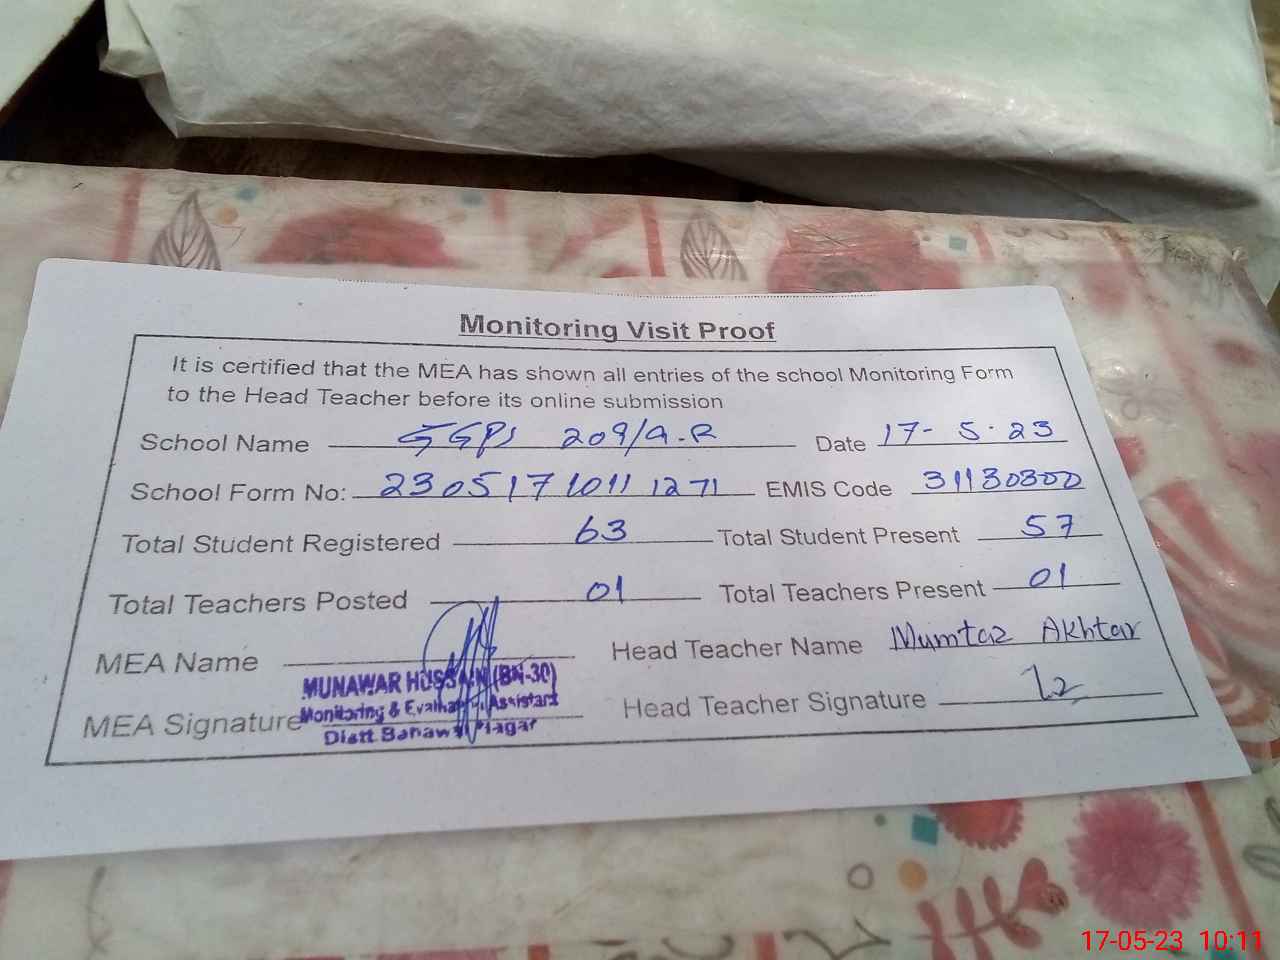 Monitoring Visit Proof
It is certified that the MEA has shown all entries of the school Monitoring Form
to the Head Teacher before its online submission
School Name GGPS 209/9-R Date 17-5-23
School Form No: 23051710111271 EMIS Code 31130300
Total Student Registered 63 Total Student Present 57
Total Teachers Posted 01 Total Teachers Present 01
MEA Name Head Teacher Name Mumtaz Akhtar
MUNAWAR HUSSAIN (BN-30)
MEA Signature Monitoring & Evaluation Assistant Head Teacher Signature
Distt Bahawalnagar
17-05-23 10:11